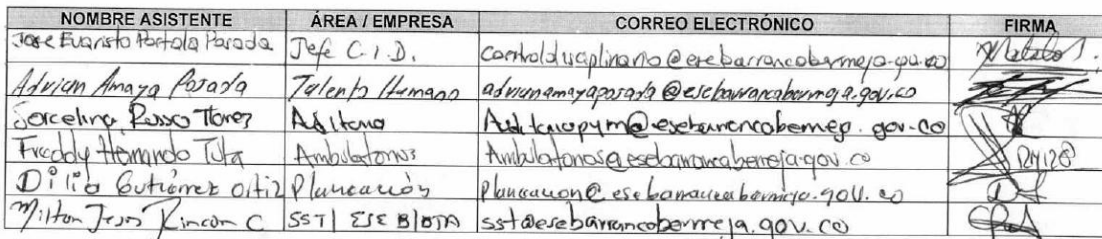 NOMBRE ASISTENTE ÁREA / EMPRESA CORREO ELECTRÓNICO FIRMA
Jose Evaristo Portala Parada Jefe C.I.D. controldisciplinario@esebarrancabermeja.gov.co
Adrian Amaya Posada Talento Humano adrianamayaposada@esebarrancabermeja.gov.co
Russo Auditoria
Freddy Hernando Tuta Ambulatorios Ambulatorios@esebarrancabermeja.gov.co
Dilia Gutiérrez Ortiz Planeación planeacion@esebarrancabermeja.gov.co
Milton Jesus Rincon C SST| ESE B|BJA sst@esebarrancabermeja.gov.co